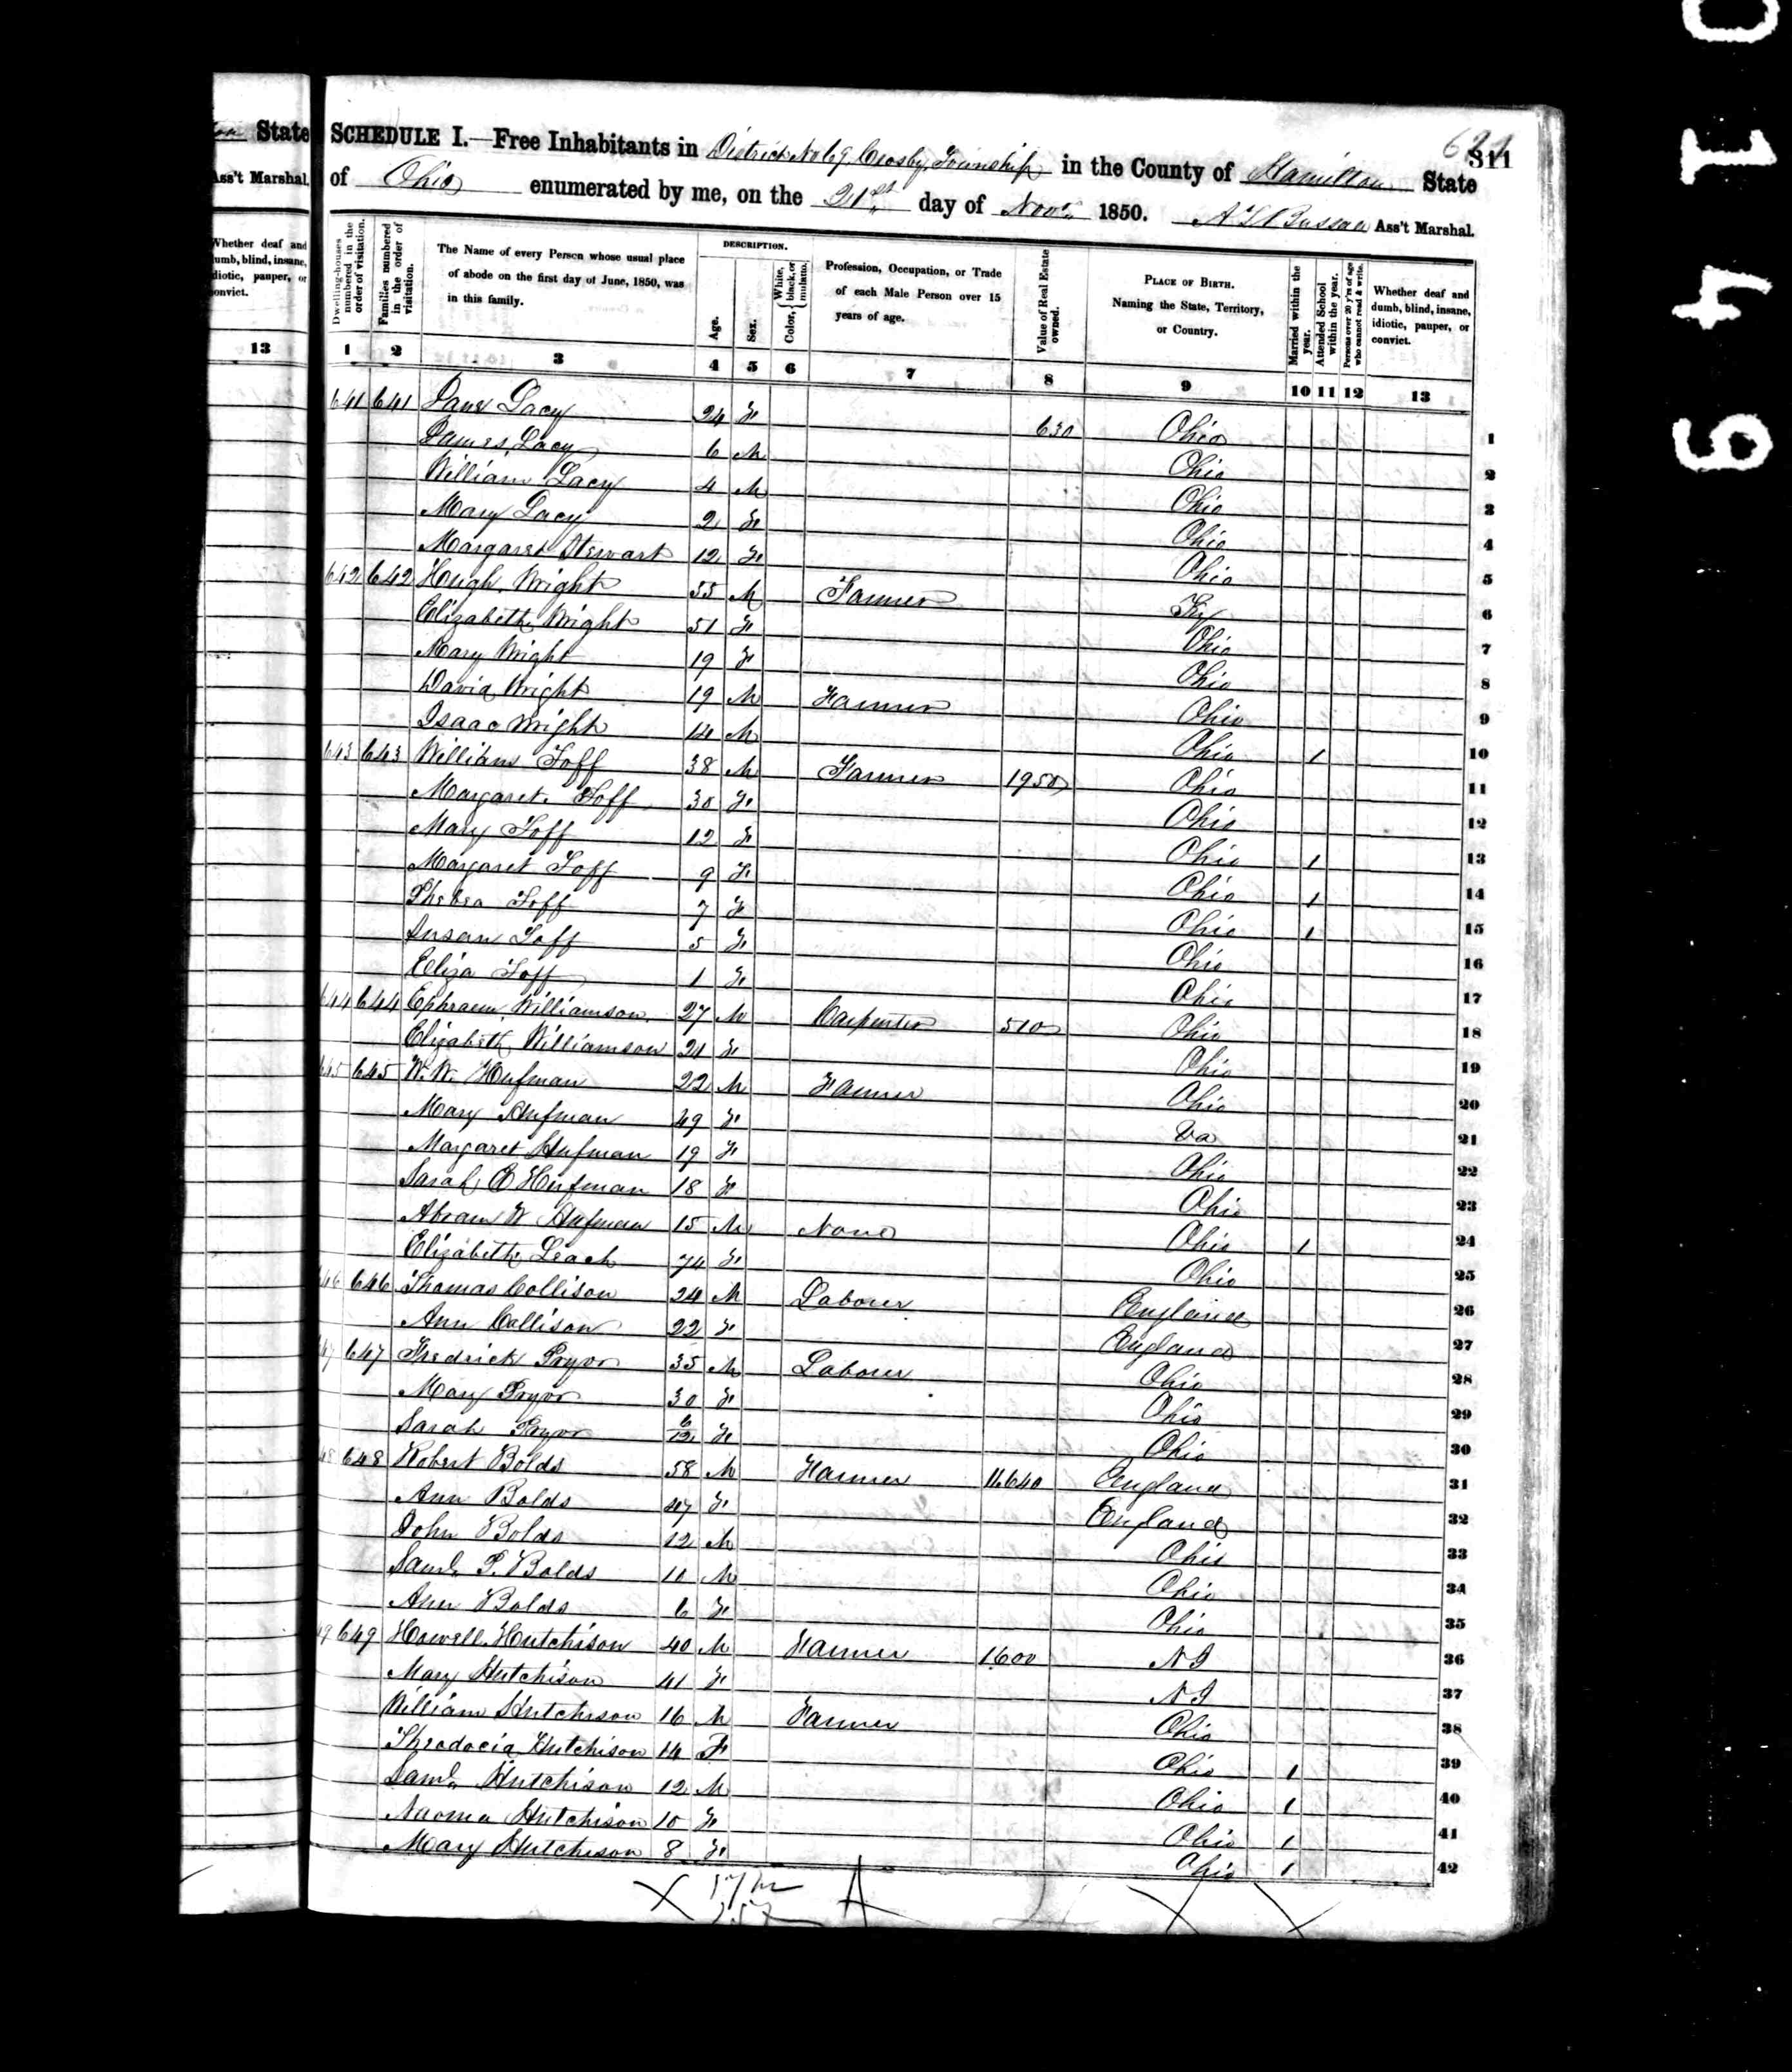 State
Ass't Marshal.
Whether deaf and
dumb, blind, insane,
idiotic, pauper, or
convict.
13
0114 9
311
SCHEDULE I.—Free Inhabitants in District No 69 Crosby Township in the County of Hamilton State
of Ohio enumerated by me, on the 21st day of Nov. 1850. Ass't Marshal.
Dwelling-houses numbered in the order of visitation.
Families numbered in the order of visitation.
The Name of every Person whose usual place of abode on the first day of June, 1850, was in this family.
DESCRIPTION.
Age.
Sex.
Color, { White, black, or mulatto.
Profession, Occupation, or Trade of each Male Person over 15 years of age.
Value of Real Estate owned.
PLACE OF BIRTH. Naming the State, Territory, or Country.
Married within the year.
Attended School within the year.
Persons over 20 y'rs of age who cannot read & write.
Whether deaf and dumb, blind, insane, idiotic, pauper, or convict.
1 2 3 4 5 6 7 8 9 10 11 12 13
641 641 Jane Lacy 24 F 630 Ohio 1
James Lacy 6 M Ohio 2
William Lacy 4 M Ohio 3
Mary Lacy 2 F Ohio 4
Margaret Stewart 12 F Ohio 5
642 642 Hugh Wright 55 M Farmer Ky 6
Elizabeth Wright 51 F Ohio 7
Mary Wright 19 F Ohio 8
David Wright 19 M Farmer Ohio 9
Isaac Wright 14 M Ohio 1 10
643 643 William Toff 38 M Farmer 1950 Ohio 11
Margaret Toff 30 F Ohio 12
Mary Toff 12 F Ohio 1 13
Margaret Toff 9 F Ohio 1 14
Phebea Toff 7 F Ohio 1 15
Susan Toff 5 F Ohio 16
Eliza Toff 1 F Ohio 17
644 644 Ephraem Williamson 27 M Carpenter 510 Ohio 18
Elizabeth Williamson 21 F Ohio 19
645 645 W. W. Hufman 22 M Farmer Ohio 20
Mary Hufman 49 F Va 21
Margaret Hufman 19 F Ohio 22
Sarah E Hufman 18 F Ohio 23
Abram W Hufman 15 M None Ohio 1 24
Elizabeth Leach 74 F Ohio 25
46 646 Thomas Collison 24 M Laborer England 26
Ann Collison 22 F England 27
47 647 Fredrick Pryor 35 M Laborer Ohio 28
Mary Pryor 30 F Ohio 29
Sarah Pryor 6/12 F Ohio 30
48 648 Robert Bolds 58 M Farmer 11640 England 31
Ann Bolds 47 F England 32
John Bolds 12 M Ohio 33
Saml. P. Bolds 10 M Ohio 34
Ann Bolds 6 F Ohio 35
9 649 Howell Hutchison 40 M Farmer 1600 N J 36
Mary Hutchison 41 F N J 37
William Hutchison 16 M Farmer Ohio 38
Theodocia Hutchison 14 F Ohio 1 39
Saml. Hutchison 12 M Ohio 1 40
Naoma Hutchison 10 F Ohio 1 41
Mary Hutchison 8 F Ohio 1 42